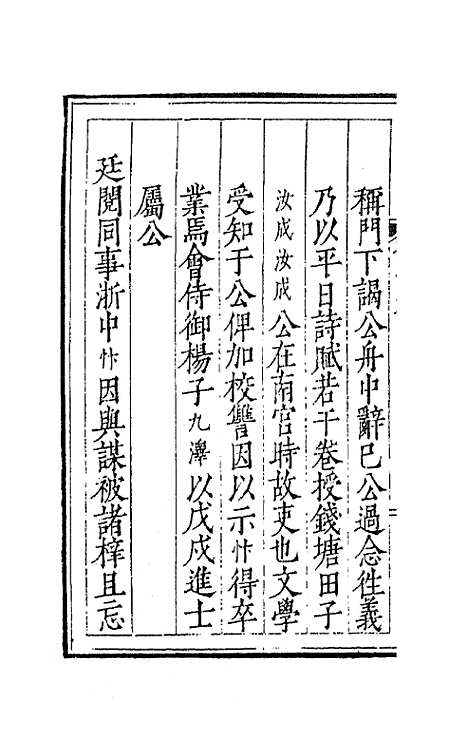 稱門下謁公舟中辭已公過念徃義
乃以平日詩賦若干卷授錢塘田子
汝成汝成公在南宮時故吏也文學
受知于公俾加校讐因以示忭得卒
業焉會侍御楊子九澤以戊戌進士
屬公
廷閱同事浙中忭因與謀被諸梓且忘